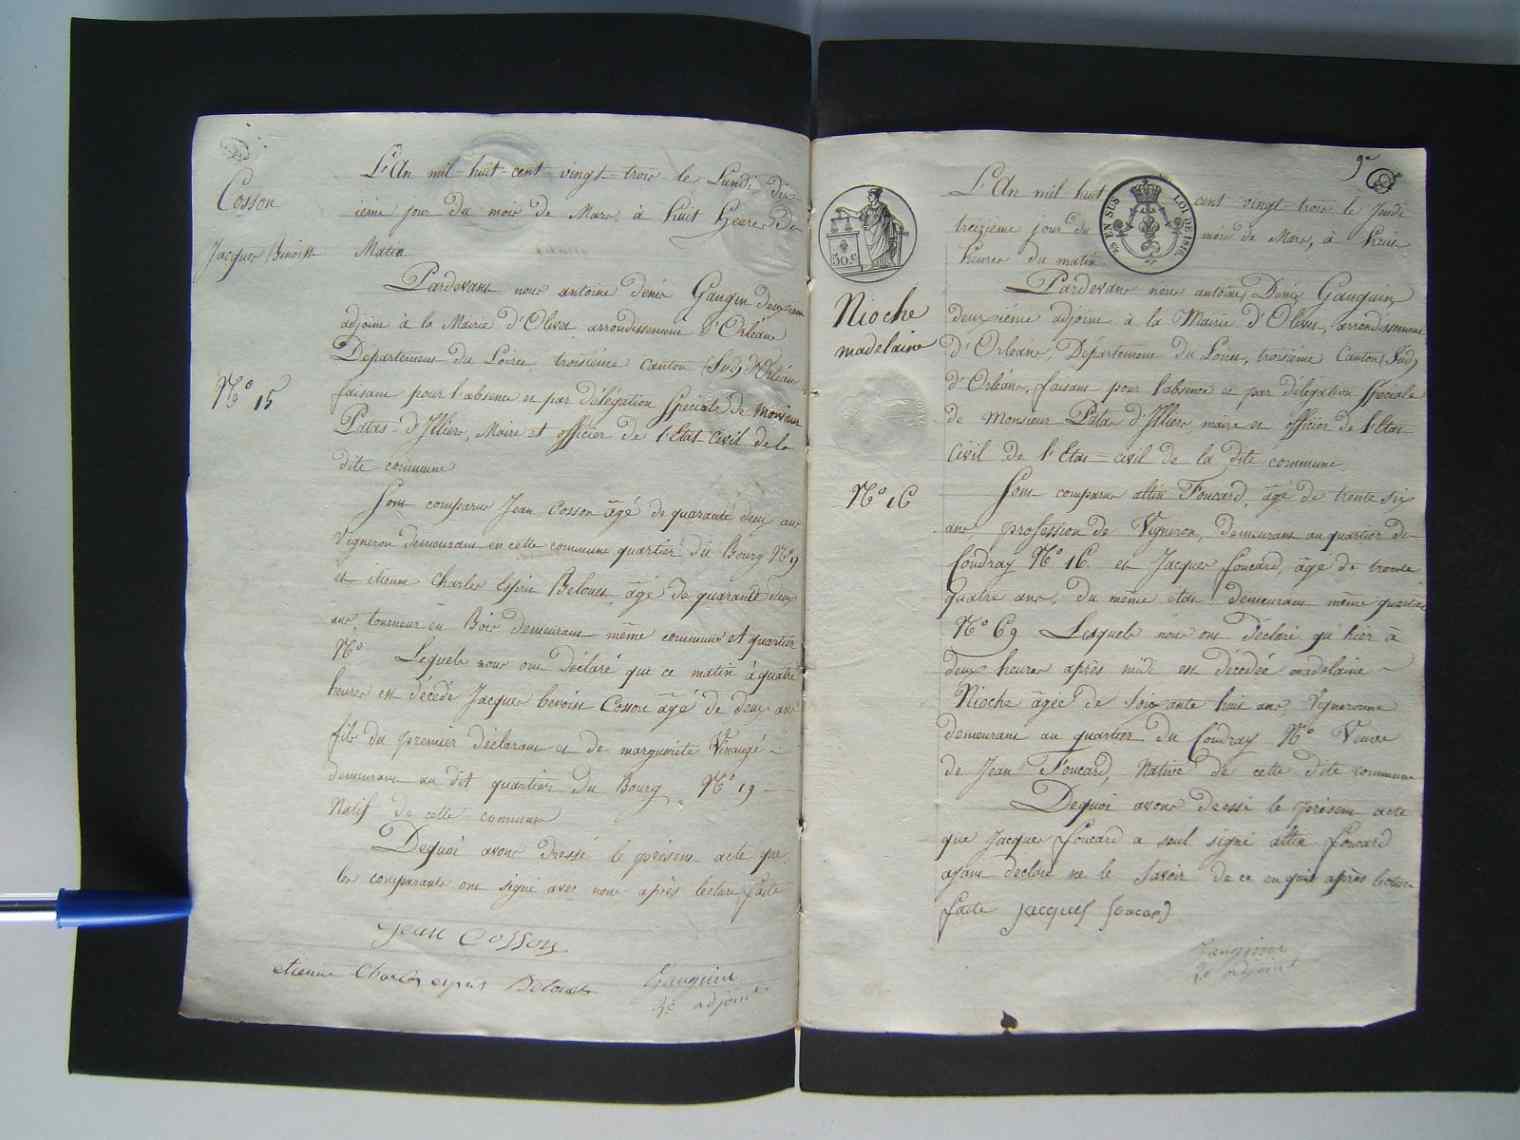 Cosson
Jacques Benoist
N.º 15
L'An mil-huit-cent-vingt-trois le Lundi dix
ième jour du mois de Mars à huit Heures du
Matin
Pardevant nous antoine denis Gauguin deuxième
adjoint à la Mairie d'Olivet arrondissement d'Orléans
Département du Loiret troisième canton (Sud) d'Orléans
faisant pour l'absence et par délégation spéciale de monsieur
Patas-d'Illiers, Maire et officier de l'Etat Civil de la
dite commune
Sont comparus Jean Cosson âgé de quarante deux ans
Vigneron demeurant en cette commune quartier du Bourg N.º 9
et etienne charles Belouet âgé de quarante deux
ans, tourneur en Bois demeurant même commune et quartier
N.º Lesquels nous ont déclaré que ce matin à quatre
heures est décédé Jacques benoist Cosson âgé de deux ans
fils du premier déclarant et de marguerite
demeurant au dit quartier du Bourg N.º 19
Natif de cette commune
Dequoi avons dressé le présent acte que
les comparants ont signé avec nous après lecture faite
jean cosson
etienne Charles esprit Belouet
Gauguin
2e adjoint
9e
50.c
EN SUS
LOI DE 1816
Nioche
madelaine
N.º 16
L'An mil huit cent vingt-trois le Jeudi
treizième jour du mois de Mars, à huit
heures du matin
Pardevant nous antoine Denis Gauguin
deuxième adjoint à la Mairie d'Olivet, arrondissement
d'Orléans, Département du Loiret, troisième Canton (Sud)
d'Orléans, faisant pour l'absence et par délégation spéciale
de Monsieur Patas d'Illiers maire et officier de l'Etat
Civil de l'Etat-civil de la dite commune
Sont comparus Foucard, âgé de trente six
ans profession de Vigneron, demeurant au quartier de
Coudray N.º 16 et Jacques foucard, âgé de trente
quatre ans, du même etat demeurant même quartier
N.º 69 Lesquels nous ont déclaré qu'hier à
deux heures après midi est décédée madelaine
Nioche âgée de soixante huit ans, Vigneronne
demeurant au quartier du Coudray N.º Veuve
de Jean Foucard, Native de cette dite commune
Dequoi avons dressé le présent acte
que Jacques foucard a seul signé foucard
ayant déclaré ne le savoir de ce enquis après lecture
faite jacques foucard
Gauguin
2e adjoint